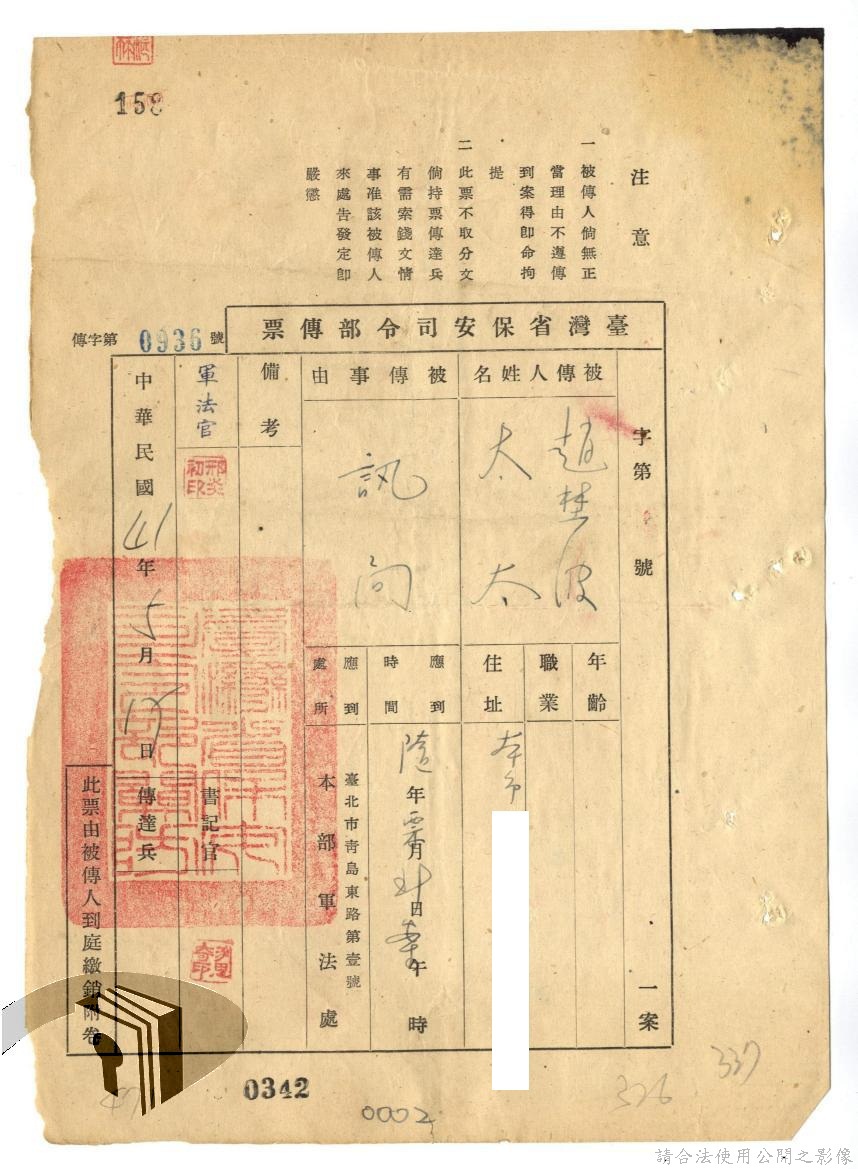 158
注意
一 被傳人倘無正
當理由不遵傳
到案得卽命拘
提
二 此票不取分文
倘持票傳達兵
有需索錢文情
事准該被傳人
來處告發定卽
嚴懲
臺灣省保安司令部傳票
傳字第0936號
字第 號 一案
被傳人姓名
趙楚波
太太
年齡
職業
住址
本市
被傳事由
訊問
應到時間
隨年票月 日 午 時
應到處所
臺北市靑島東路第壹號
本部軍法處
備考
軍法官
邢炎初印
書記官
中華民國41年5月19日
傳達兵
此票由被傳人到庭繳銷附卷
0342
0002
326
337
47
請合法使用公開之影像